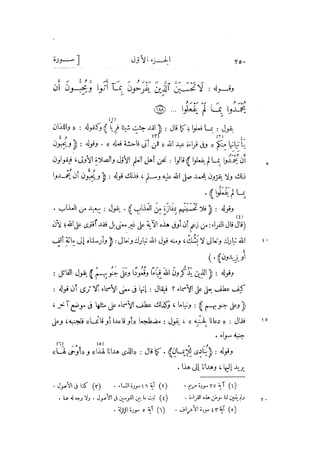 ٢٥٠ الجزء الأول [ سورة
وقوله : لَا تَحْسَبَنَّ الَّذِينَ يَفْرَحُونَ بِمَا أَتَوا وَّيُحِبُّونَ أَن
يُحْمَدُوا بِمَا لَمْ يَفْعَلُوا ... (١٨٨)
يقول : بما فعلوا ؛ كما قال : ﴿ لقد جئتِ شيئا فريًّا ﴾ (١) وكقوله : « واللذان
يأتيانها منكم » (٢) وفى قراءة عبد الله « فمن أتى فاحشة فعله » (٣) . وقوله : ﴿ ويحبون
أن يحمدوا بما لم يفعلوا ﴾ قالوا : نحن أهل العلم الأول والصلاة الأولى، فيقولون
ذلك ولا يقرّون بمحمد صلى الله عليه وسلم ، فذلك قوله : ﴿ ويحبون أن يحمدوا
بما لم يفعلوا ﴾ .
وقوله : ﴿ فلا تحسبنهم بمفازة من العذاب ﴾ . يقول : ببعيد من العذاب .
(قال قال الفراء : من زعم أن أوفى هذه الآية على غير معنى بل فقد أفترى على الله ؛ لأن (٤)
الله تبارك وتعالى لا يشكّ ، ومنه قول الله تبارك وتعالى : ﴿ وأرسلناه إلى مائة ألف
أو يزيدون ﴾ . )
وقوله : ﴿ الذين يذكرون الله قياما وقعودا وعلى جنوبهم ﴾ يقول القائل :
كيف عطف بعلى على الأسماء ؟ فيقال : إنها فى معنى الأسماء ألا ترى أن قوله :
﴿ وعلى جنوبهم ﴾ : ونياما ، وكذلك عطف الأسماء على مثلها فى موضع آخر ،
فقال : « دعانا لجنبه » ، يقول : مضطجعا « أو قاعدا أو قائما » فلجنبه ، وعلى
جنبه سواء .
وقوله : ﴿ ينادى للإيمان ﴾ . كما قال : « الذى هدانا لهذا » (٥) و « أوحى لها » (٦)
يريد إليها ، وهدانا إلى هذا .
(١) آية ٢٧ سورة مريم . (٢) آية ١٦ سورة النساء . (٣) كذا فى الأصول .
(٤) ثبت ما بين القوسين فى الأصول . ولا وجه له هنا .
(٥) آية ٤٣ سورة الأعراف . (٦) آية ٥ سورة الزلزلة .